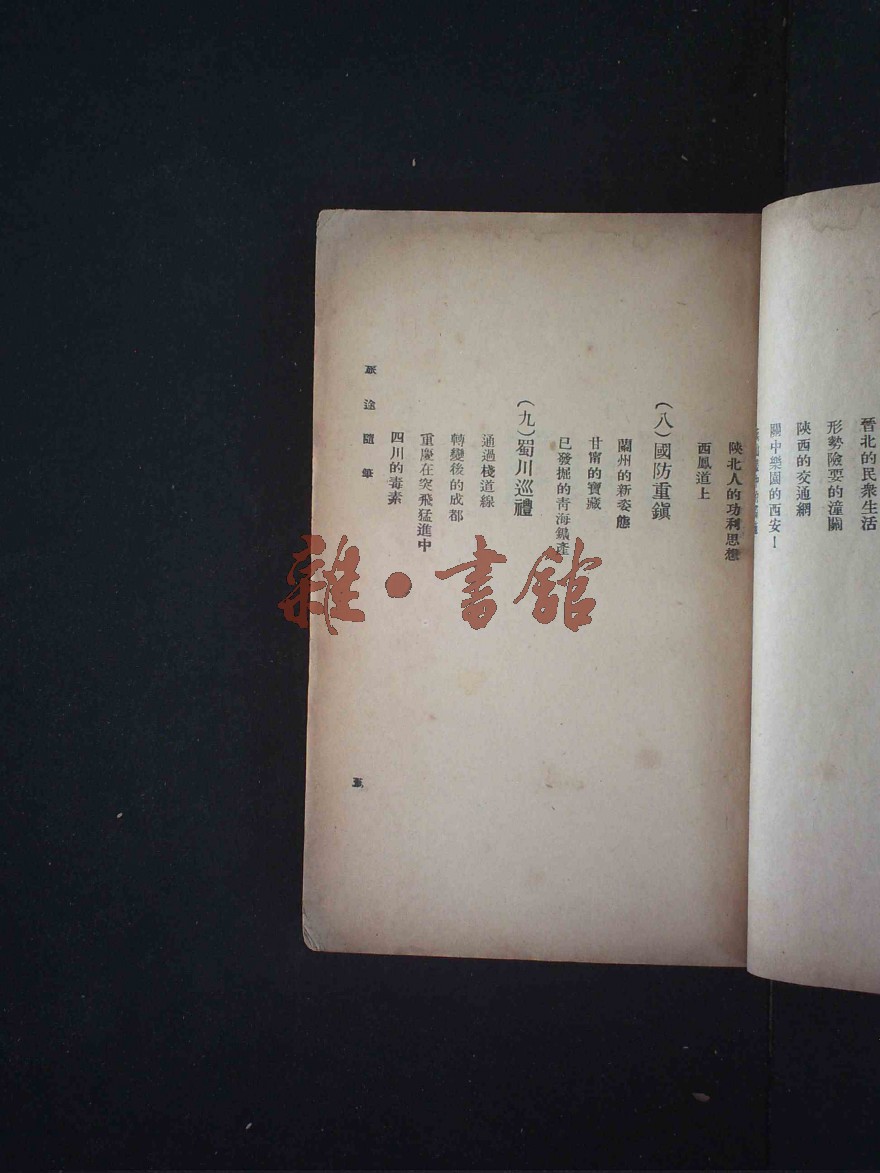 晉北的民衆生活
形勢險要的潼關
陝西的交通網
關中樂園的西安！
陝北人的功利思想
西鳳道上
（八）國防重鎮
蘭州的新姿態
甘甯的寶藏
已發掘的青海鑛產
（九）蜀川巡禮
通過棧道線
轉變後的成都
重慶在突飛猛進中
四川的毒素
旅途隨筆
五
雜·書館